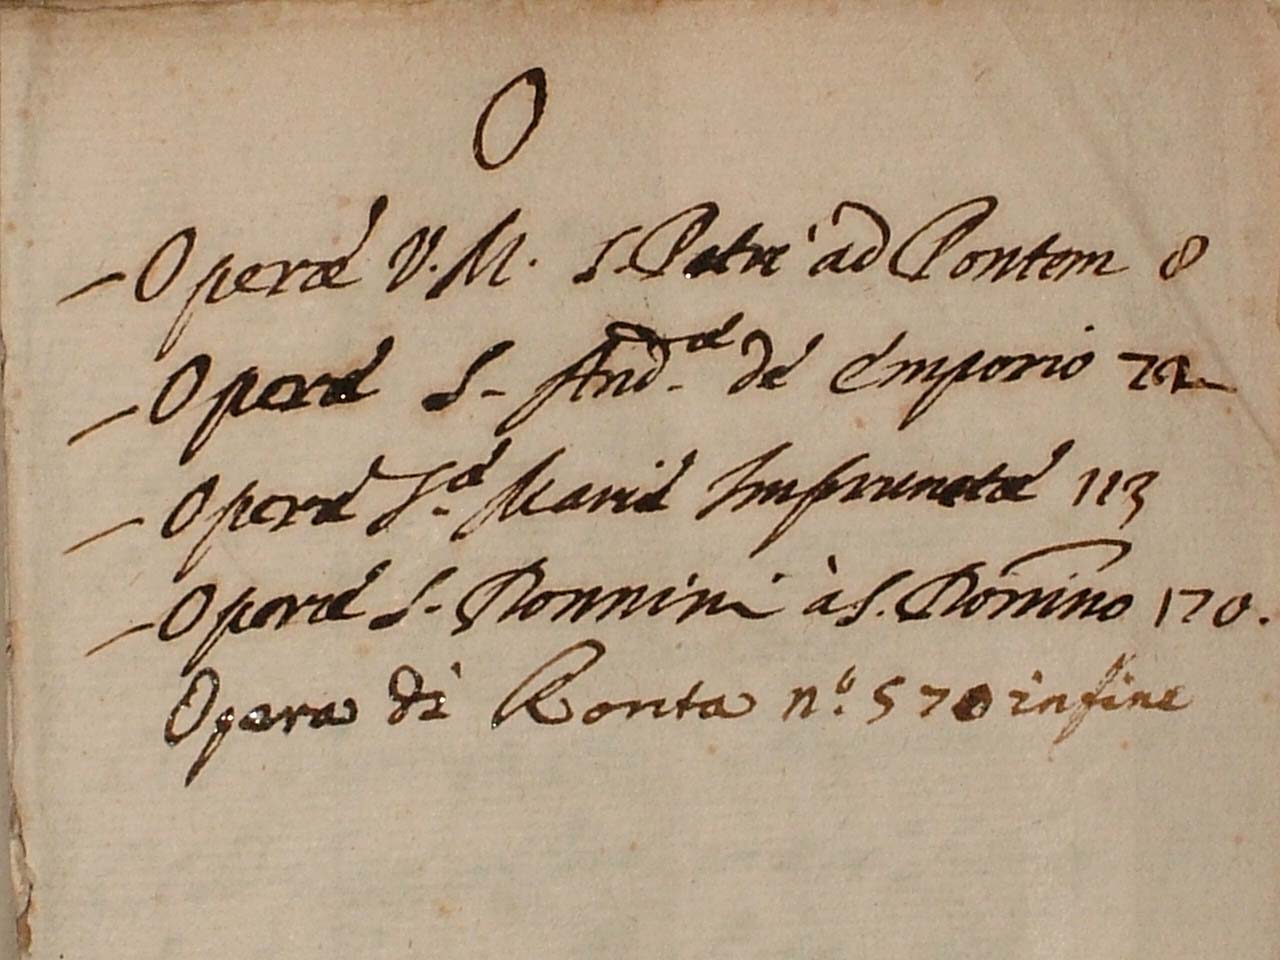 O
– Operæ V. M. S. Petri ad Pontem 8
– Operæ S. And.æ de Emporio 72
– Operæ S.æ Mariæ Imprunetæ 113
– Operæ S. Romnini à S. Romino 170.
Opera di Ronta n.o 570 infine